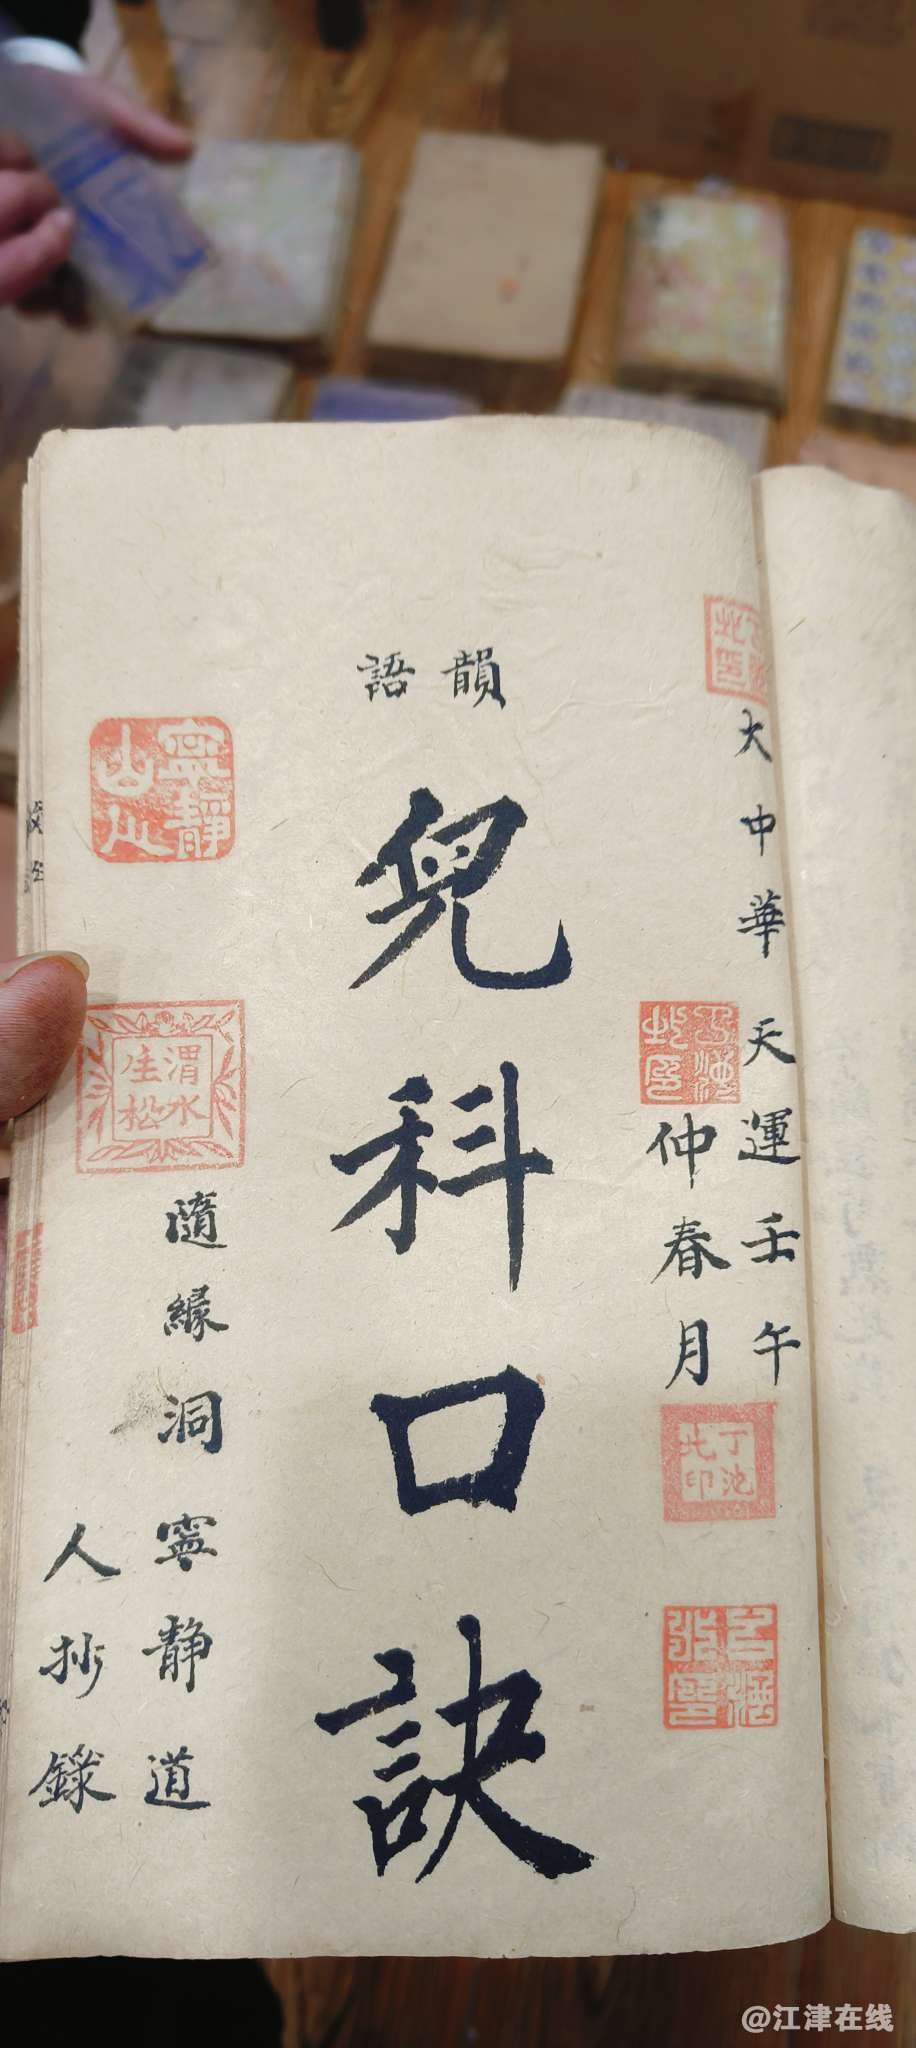 大中華天運壬午
仲春月
韻語
兒科口訣
隨緣洞寧靜道
人抄錄
寧靜山人
渭水生松
丁池此印
@江津在线